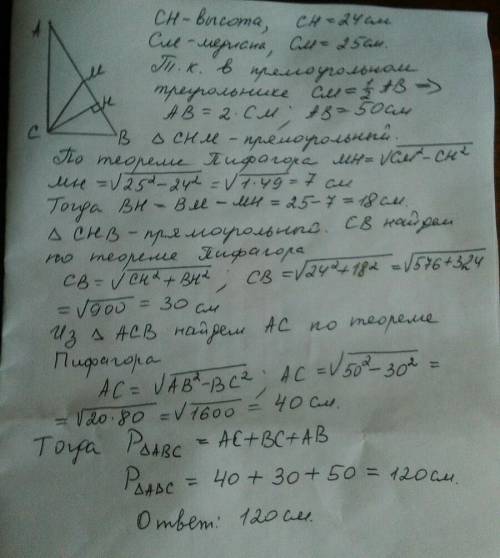 A
M
H
C
B
CH - высота, CH = 24 см
CM - медиана, CM = 25 см.
Т.к. в прямоугольном
треугольнике CM = 1/2 AB =>
AB = 2 · CM ; AB = 50 см
Δ CHM - прямоугольный.
По теореме Пифагора MH = √(CM² - CH²)
MH = √(25² - 24²) = √(1 · 49) = 7 см
Тогда BH = BM - MH = 25 - 7 = 18 см.
Δ CHB - прямоугольный. CB найдем
по теореме Пифагора
CB = √(CH² + BH²) ; CB = √(24² + 18²) = √(576 + 324)
= √900 = 30 см
Из Δ ACB найдем AC по теореме
Пифагора
AC = √(AB² - BC²) ; AC = √(50² - 30²) =
= √(20 · 80) = √1600 = 40 см.
Тогда P ΔABC = AC + BC + AB
P ΔABC = 40 + 30 + 50 = 120 см.
Ответ: 120 см.